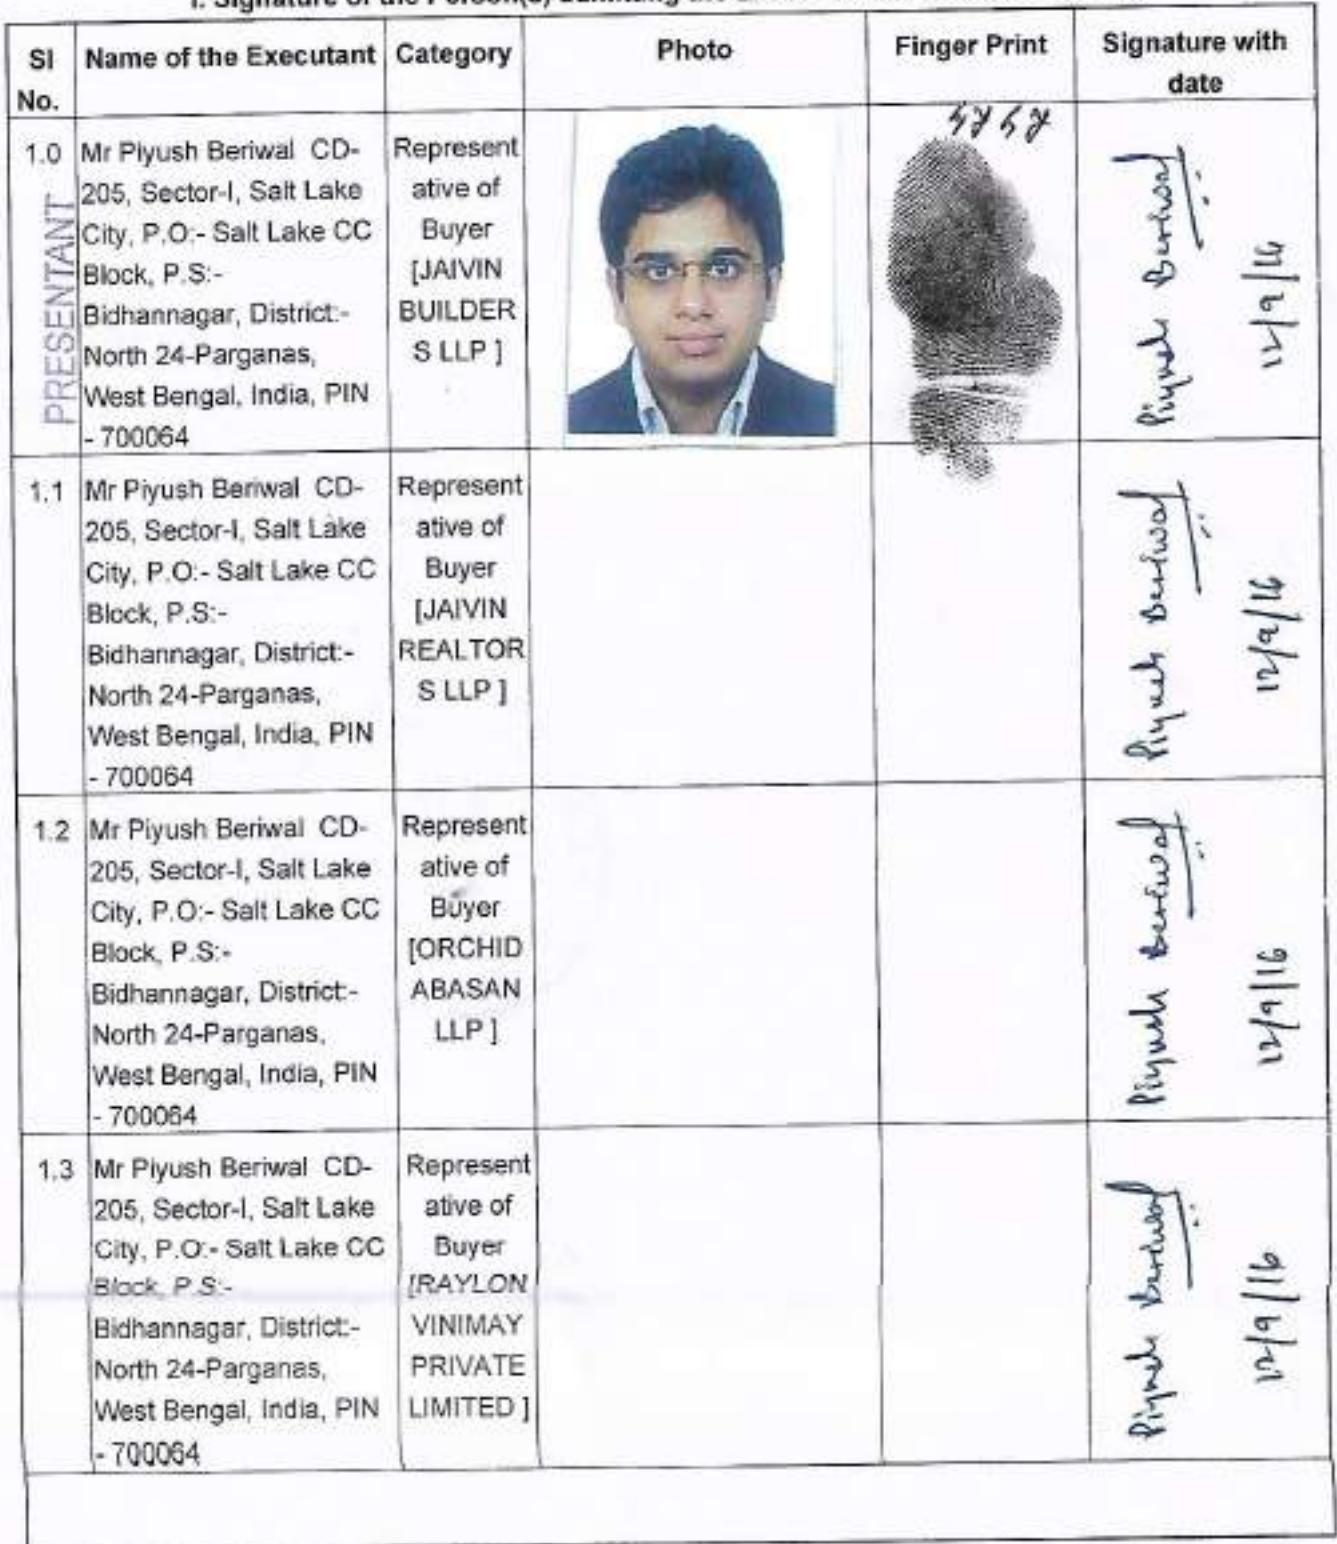 I. Signature of the Person(s)
Sl No.
Name of the Executant
Category
Photo
Finger Print
Signature with
date
1.0
PRESENTANT
Mr Piyush Beriwal CD-
205, Sector-I, Salt Lake
City, P.O:- Salt Lake CC
Block, P.S:-
Bidhannagar, District:-
North 24-Parganas,
West Bengal, India, PIN
- 700064
Represent
ative of
Buyer
[JAIVIN
BUILDER
S LLP ]
Piyush Beriwal
12/9/16
1.1
Mr Piyush Beriwal CD-
205, Sector-I, Salt Lake
City, P.O:- Salt Lake CC
Block, P.S:-
Bidhannagar, District:-
North 24-Parganas,
West Bengal, India, PIN
- 700064
Represent
ative of
Buyer
[JAIVIN
REALTOR
S LLP ]
Piyush Beriwal
12/9/16
1.2
Mr Piyush Beriwal CD-
205, Sector-I, Salt Lake
City, P.O:- Salt Lake CC
Block, P.S:-
Bidhannagar, District:-
North 24-Parganas,
West Bengal, India, PIN
- 700064
Represent
ative of
Buyer
[ORCHID
ABASAN
LLP ]
Piyush Beriwal
12/9/16
1.3
Mr Piyush Beriwal CD-
205, Sector-I, Salt Lake
City, P.O:- Salt Lake CC
Block, P.S:-
Bidhannagar, District:-
North 24-Parganas,
West Bengal, India, PIN
- 700064
Represent
ative of
Buyer
[RAYLON
VINIMAY
PRIVATE
LIMITED ]
Piyush Beriwal
12/9/16